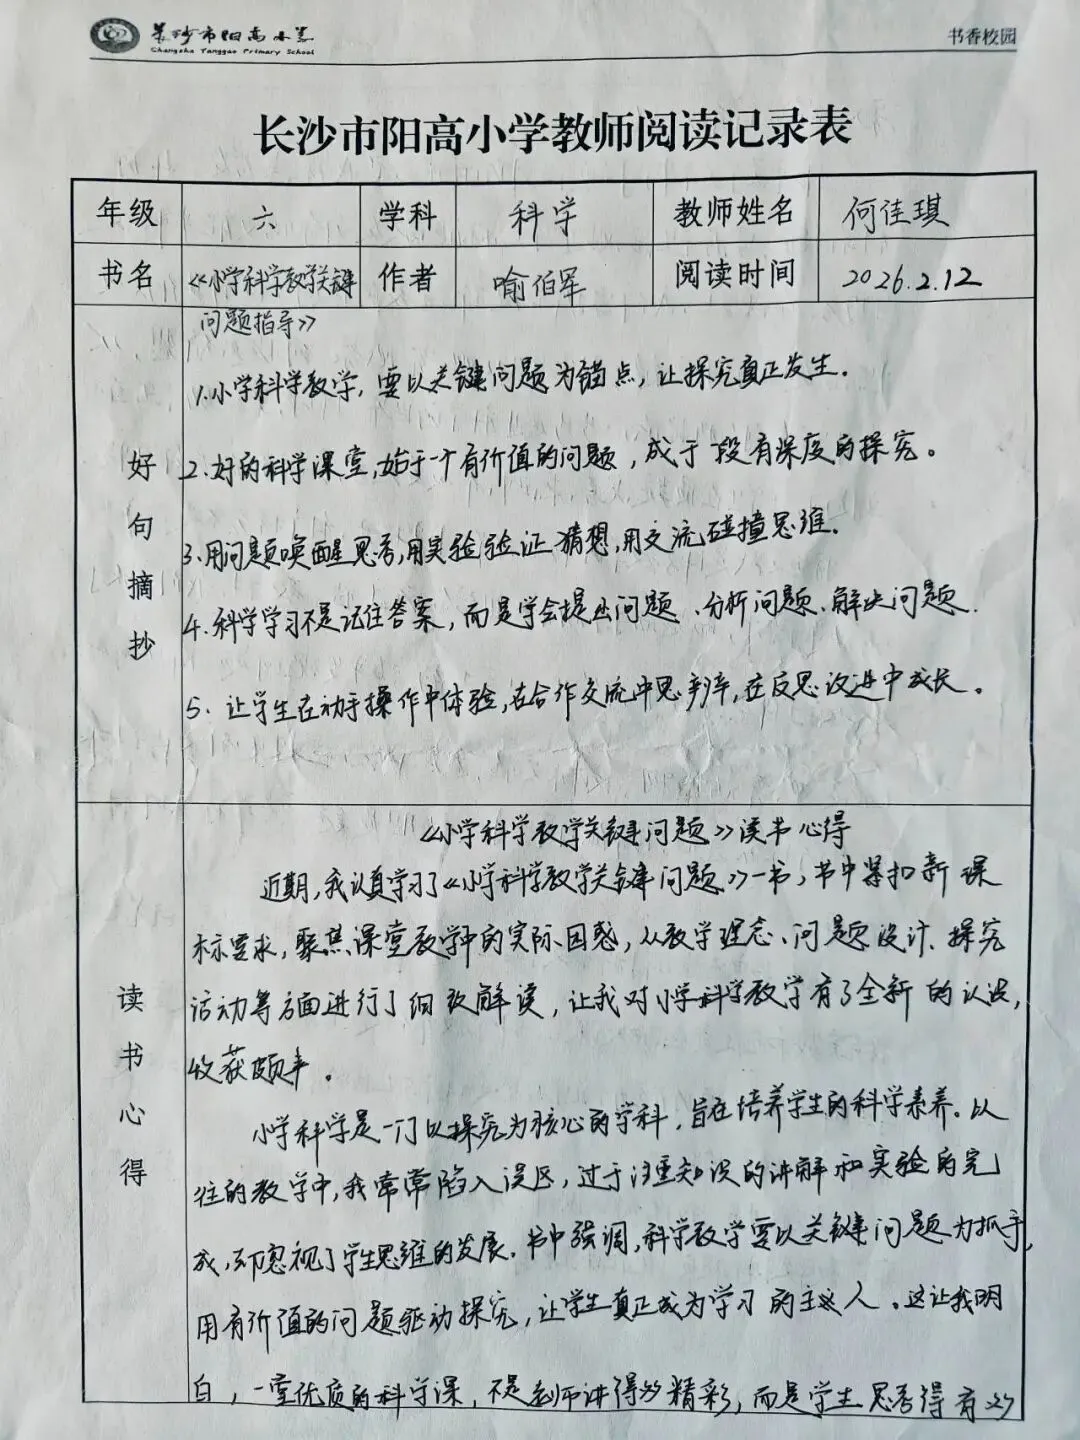 长沙市阳高小学
Changsha Yanggao Primary School
书香校园
长沙市阳高小学教师阅读记录表
年级 六 学科 科学 教师姓名 何佳琪
书名 《小学科学教学关键 作者 喻伯军 阅读时间 2026.2.12
问题指导》
好句摘抄
1.小学科学教学，要以关键问题为锚点，让探究真正发生.
2.好的科学课堂,始于一个有价值的问题，成于一段有深度的探究。
3.用问题唤醒思考,用实验验证猜想,用交流碰撞思维.
4.科学学习不是记住答案，而是学会提出问题、分析问题、解决问题.
5.让学生在动手操作中体验,在合作交流中思辨,在反思改进中成长。
读书心得
《小学科学教学关键问题》读书心得
近期,我认真学习了《小学科学教学关键问题》一书，书中紧扣新课
标要求，聚焦课堂教学中的实际困惑，从教学理念、问题设计、探究
活动等方面进行了细致解读，让我对小学科学教学有了全新的认识，
收获颇丰。
小学科学是一门以探究为核心的学科，旨在培养学生的科学素养.以
往的教学中,我常常陷入误区，过于注重知识的讲解和实验的完
成,却忽视了学生思维的发展.书中强调,科学教学要以关键问题为抓手,
用有价值的问题驱动探究，让学生真正成为学习的主人。这让我明
白，一堂优质的科学课，不是老师讲得多精彩，而是学生思考得有多